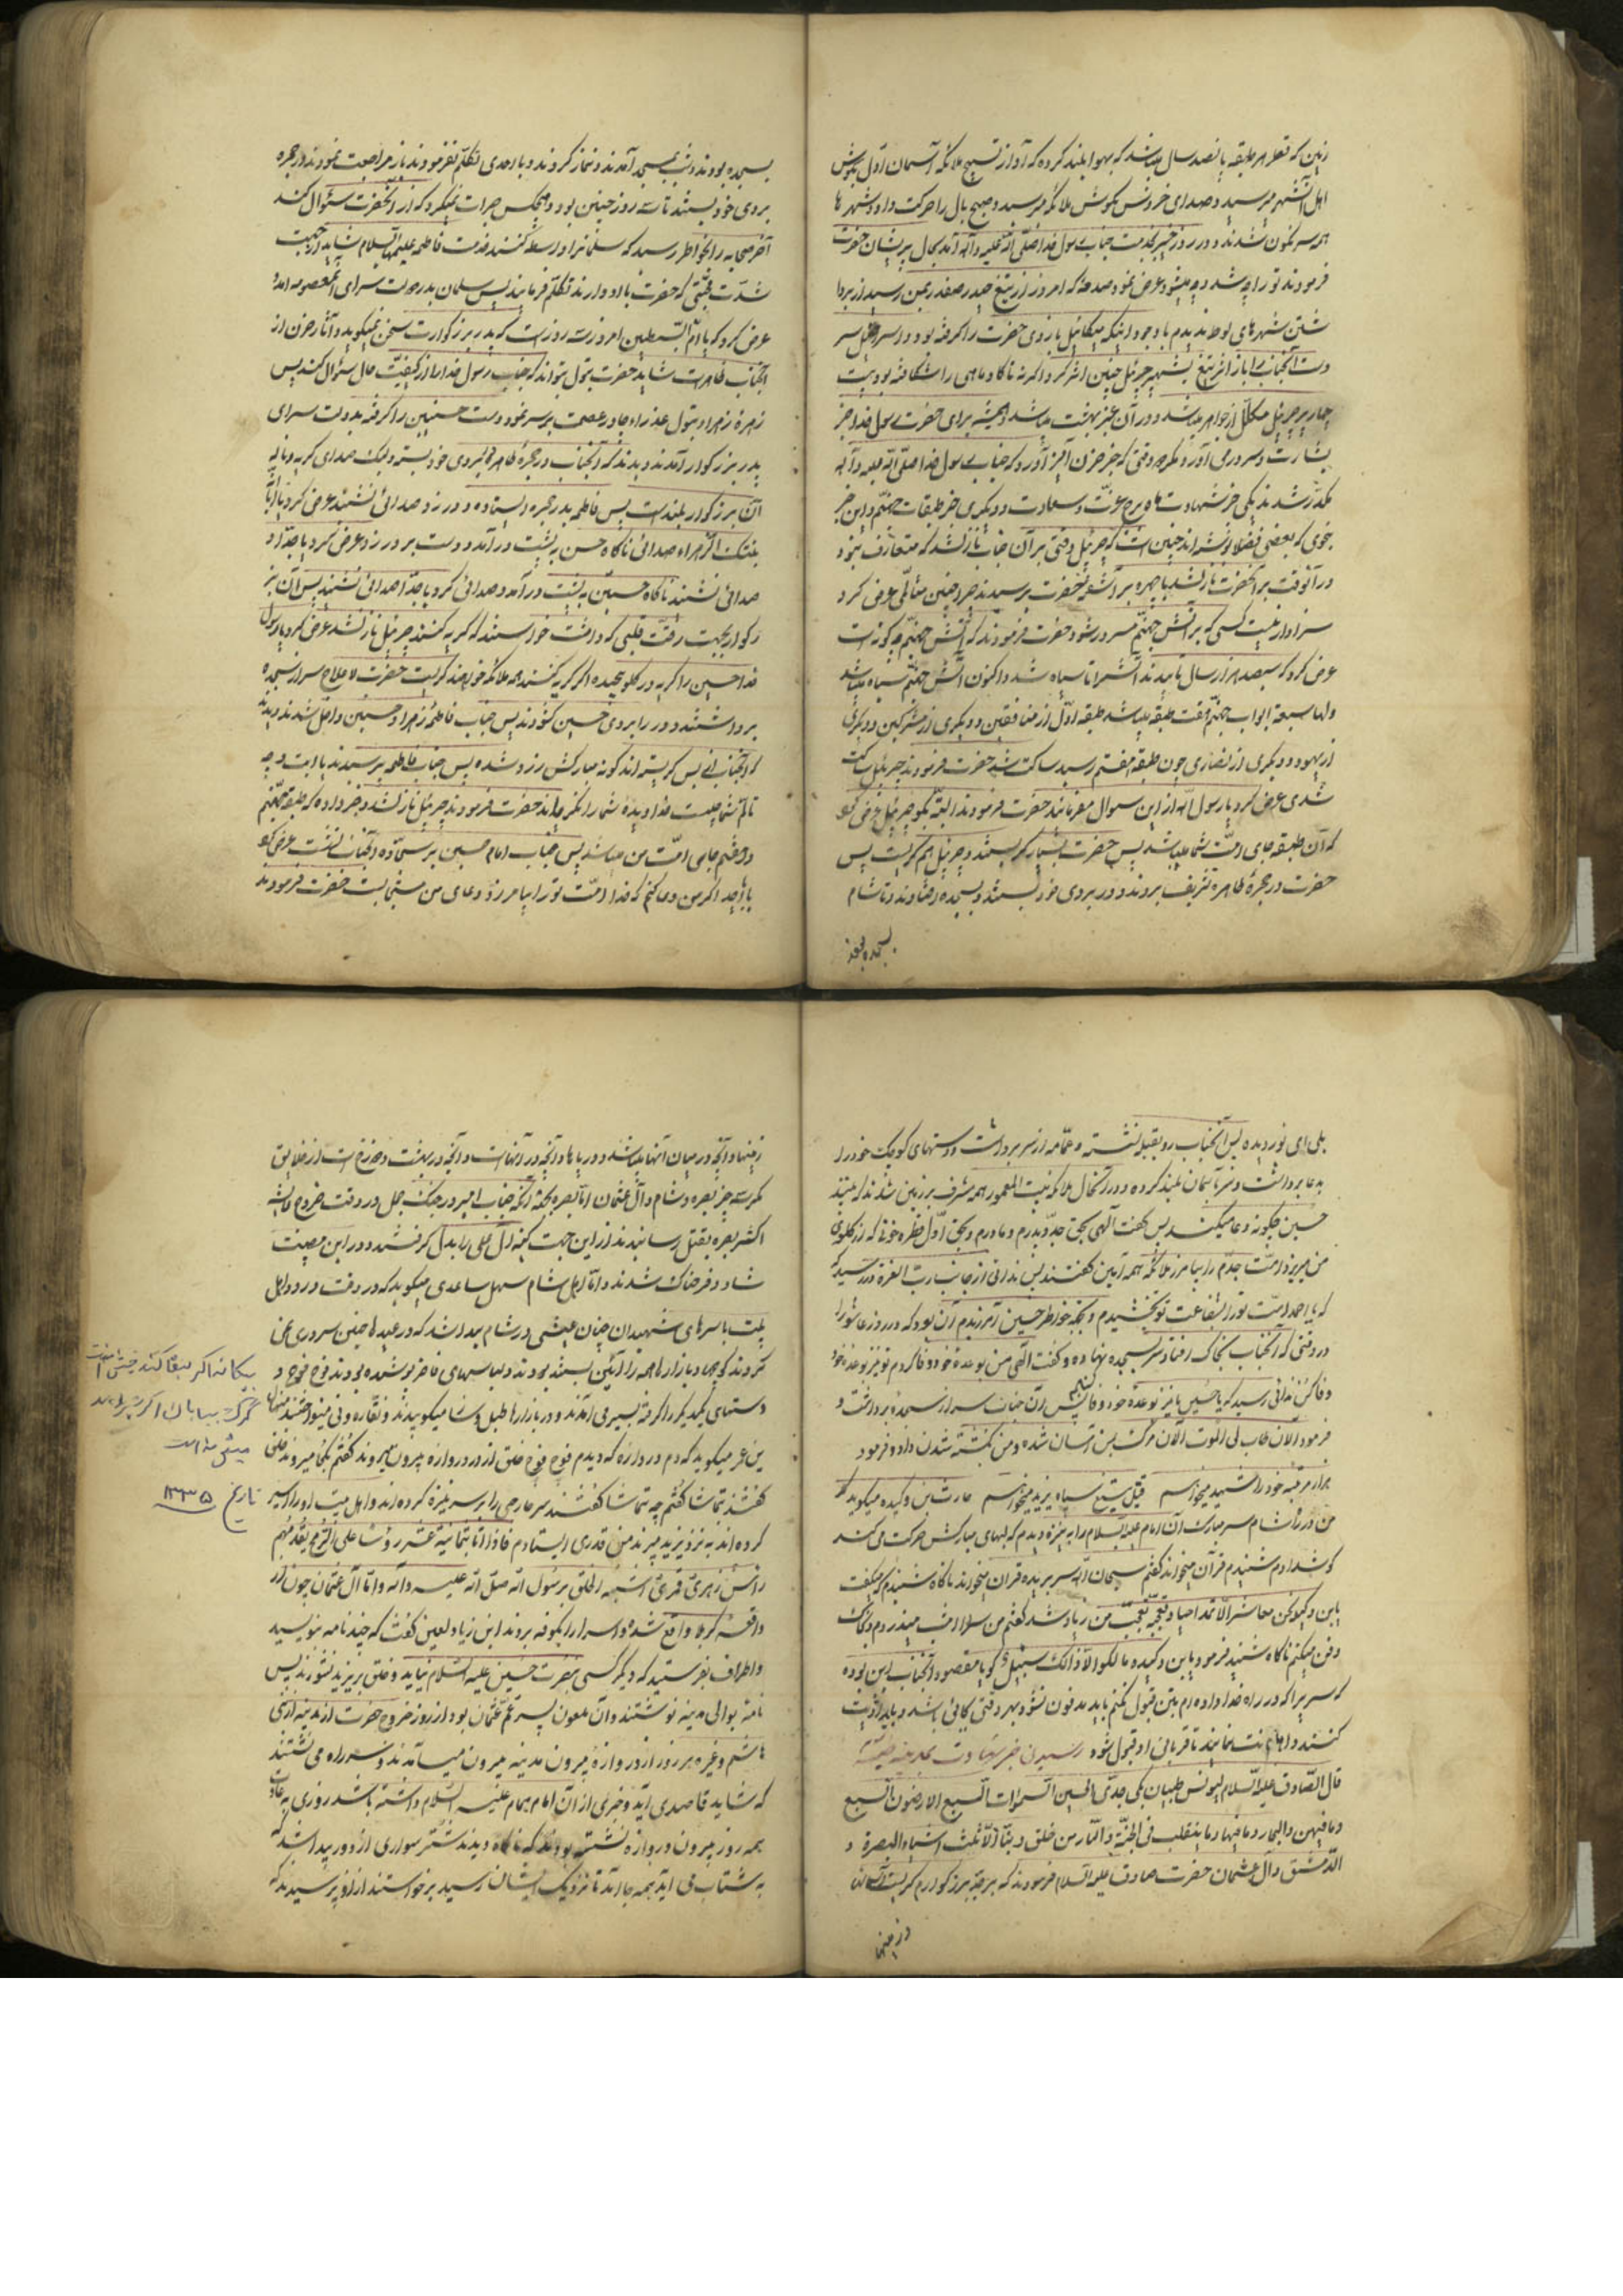 زمین که قطر هر طبقه پانصد سال میباشد که بهوا بلند کرده که آواز تسبیح ملائکه آسمان اول بگوش
اهل آن شهر میرسید و صدای خروس بگوش ملائکه میرسید و صبح بال را حرکت داد و شهرها
همه سرنگون شدند و در روز خیبر بخدمت جناب رسول خدا صلی الله علیه و آله آمد بحال پریشان حضرت
فرمودند تو را چه شد عرض نمود صدمه که امروز از تیغ حیدر صفدر بمن رسید از برداشتن
شهرهای لوط ندیدم با وجود اینکه میکائیل بازوی حضرت را گرفته بود و اسرافیل سر
دست آنجناب را باز اثر تیغ بشهپر جبرئیل چنین اثر کرد اگر نه تا گاو ماهی را شکافته بود
جبرئیل مکلل از جواهر میباشد و در آن بهشت میباشد و همیشه برای حضرت رسول خدا خبر
بشارت و سرور می آورد مگر دو وقتی که خبر حزن آمیز آورد که جناب رسول خدا صلی الله علیه و آله
مکدر شدند یکی خبر شهادت ماه برج عزت و سعادت و دیگری خبر طبقات جهنم و این خبر
بنحوی که بعضی فضلا نوشته اند چنین است که جبرئیل وقتی بر آن جناب نازل شد که متعارف نبود
در آنوقت بر آنحضرت نازل شد با چهره بر آشفته حضرت پرسیدند چرا چنین متألمی عرض کرد
سزاوار نیست کسی که بر آتش جهنم مسرور شود حضرت فرمودند که آتش جهنم چه گونه است
عرض کرد که سیصد هزار سال تابیدند آتش را تا سیاه شد و اکنون آتش جهنم سیاه میباشد
و لها سبعة ابواب جهنم هفت طبقه میباشد طبقه اول از منافقین و دیگری از مشرکین و دیگری
از یهود و دیگری از نصاری چون طبقه هفتم رسید ساکت شد حضرت فرمودند جبرئیل ساکت
شدی عرض کرد یا رسول الله از این سوال مفرمائید حضرت فرمودند البته بگو جبرئیل عرض کرد
که آن طبقه جای امت شما میباشد پس حضرت بسیار گریستند و جبرئیل هم گریست پس
حضرت در حجرهٔ طاهره تشریف بردند و در بروی خود بستند و بسجده رفتند و تا شام
بسجده بودند
بسجده بودند و شب بمسجد آمدند و نماز کردند و با احدی تکلم نفرمودند باز مراجعت نمودند در حجره
بروی خود بستند تا سه روز چنین بود و هیچکس جرات نمیکرد که از آنحضرت سئوال کند
آخر صحابه را بخواطر رسید که سلمان را واسطه کنند خدمت فاطمه علیها السلام شاید از جهت
شدت محبتی که حضرت با او دارند تکلم فرمایند پس سلمان بدر دولت سرای آن معصومه آمد و
عرض کرد که یا ام السبطین امروز سه روز است که پدر بزرگوارت سخن نمیگوید و آثار حزن از
آنجناب ظاهر است شاید حضرت بتول بتواند که جناب رسول خدا را از کیفیت حال سئوال کند پس
زهره زهرا و بتول عذرا چادر عصمت بر سر نمود و دست حسنین را گرفته بدولت سرای
پدر بزرگوار آمدند و دیدند که آنجناب در حجرهٔ طاهره بروی خود بسته و لیک صدای گریه و نالهٔ
آن بزرگوار بلند است پس فاطمه بدر حجره ایستاده و در زد صدائی نشنید عرض کرد یا ابتا
بنتک الزهراء صدائی ناگاه حسن به پشت در آمد و دست بر در زد عرض کرد یا جداه
صدائی نشنید ناگاه حسین به پشت در آمد و صدائی کرد یا جداه صدائی نشنید پس آن بز
رگوار بجهت رقت قلبی که داشت خواستند که گریه کنند جبرئیل نازل شد عرض کرد یا رسول
خدا حسین را گریه در گلو پیچیده اگر گریه کند همه ملائکه خواهند گریست حضرت لاعلاج سر از سجده
برداشتند و در را بروی حسین گشودند پس جناب فاطمه زهرا و حسنین داخل شدند دیدند
که آنجناب از بس گریسته اند گونه مبارکش زرد شده پس جناب فاطمه پرسیدند یا ابت وجه
تالم شما چیست خدا دیده شما را نگریاند حضرت فرمودند جبرئیل نازل شد و خبر داده که طبقه جهنم
هفتم جای امت من میباشد پس جناب امام حسین بر سجاده آنجناب نشست عرض کرد
یا جداه اگر من دعا کنم که خدا امت تو را بیامرزد دعای من مستجاب است حضرت فرمودند
بلی ای نور دیده پس آنجناب رو بقبله نشسته و عمامه از سر برداشت و دستهای کوچک خود را
بدعا برداشت و سر بآسمان بلند کرده و در آنحال ملائکه بیت المعمور همه مشرف بر زمین شدند که ببینند
حسین چگونه دعا میکند پس گفت الهی بحق جد و پدرم و مادرم و بحق اول قطره خونی که از گلوی
من میریزد امت جدم را بیامرز ملائکه همه آمین گفتند پس ندائی از جانب رب العزة در رسید
که یا احمد امت تو را بشفاعت تو بخشیدم و بجهة خواطر حسین آمرزیدم آن بود که در روز عاشورا
در وقتی که آنجناب بخاک افتاد سر بسجده نهاده و گفت الهی من بوعدهٔ خود وفا کردم تو نیز بوعده خود
وفا کن ندائی رسید که یا حسین ما نیز بوعدهٔ خود وفا کنیم پس آن جناب سر از سجده برداشت و
فرمود الان طاب لی الموت الان مرگ بمن آسان شده و من بکشته شدن داد و فرمود
هزار مرتبه خود را شهید میخواهم قتیل تیغ سپاه یزید میخواهم حارث بن وکیده میگوید که
من در راه شام سر مبارک آن امام علیه السلام را به نیزه دیدم که لبهای مبارکش حرکت میکند
گوش دادم شنیدم قرآن میخواند گفتم سبحان الله سر بریده قران میخواند ناگاه شنیدم که میگفت
یابن وکیده
دفن میکنم ناگاه شنیدم فرمود یابن وکیده مالک الا ذلک سبیل گویا مقصود آنجناب این بوده
که سریرا که در راه خدا داده ام پس قبول نکنم باید مدفون نشود بهر وقتی بجائی باشد و باید اذیت
کنند و اهانت نمایند تا قربانی او قبول شود رسیدن خبر شهادت بمدینه طیبه
قال الصادق علیه السلام لیونس ظبیان بکی جدی الحسین السموات السبع و الارضون السبع
و ما فیهن و البحار و ما فیها و ما ینقلب فی الجنة و النار من خلق ربنا الا ثلث اشیاء البصرة و
الدمشق و آل عثمان حضرت صادق علیه السلام فرمودند که بر جد بزرگوارم گریست آسمانها
و زمینها
زمینها و آنچه در میان آنها میباشد و دریاها و آنچه در آنهاست و آنچه در بهشت و دوزخ است از خلایق
مگر سه چیز بصره و شام و آل عثمان اما بصره بجهة آنکه جناب امیر در جنگ جمل در وقت خروج عایشه
اکثر بصره بقتل رسانیدند از این جهت کینه آل علی را بدل گرفتند و در این مصیبت
شاد و فرحناک شدند و اما اهل شام سهل ساعدی میگوید که در وقت ورود اهل
بیت با سرهای شهیدان چنان عیشی در شام پیدا شد که در عیدها چنین سروری نمی
کردند کوچها و بازارها همه را آئین بسته بودند و لباسهای فاخر پوشیده بودند فوج فوج
دستهای یکدیگر را گرفته بسیر می آمدند و در بازارها طبل و سنا میکوبیدند و نقاره و نی مینواختند
میگوید که دم دروازه که دیدم فوج فوج خلق از در دروازه بیرون میروند گفتم بکجا میروند
گفتند بتماشا گفتم چه تماشا گفتند سر خارجی را بر سر نیزه کرده اند و اهل بیت او را اسیر
کرده اند به نزد یزید میبرند من قدری ایستادم فاذا اتا بثمانیة عشر روسا علی الرمح یقدمهم
راس زهری قمری اشبه الخلق برسول الله صلی الله علیه و آله و اما آل عثمان چون در
واقعه کربلا واقع شد و اسرا را بکوفه بردند ابن زیاد لعین گفت که چند نامه بنویسید
و اطراف بفرستید که دیگر کسی بنصرت حسین علیه السلام نیاید و خلق بر یزید نشورند پس
نامه بوالی مدینه نوشتند و آن ملعون پسر عم عثمان بود از روز خروج حضرت از مدینه از بنی
هاشم و غیره هر روز از دروازهٔ بیرون مدینه بیرون میآمدند و سر راه می نشستند
که شاید قاصدی آید و خبری از آن امام همام علیه السلام داشته باشد روزی به عادت
همه روز بیرون دروازه نشسته بودند که ناگاه دیدند شتر سواری از دور پیدا شد که
به شتاب می آید همه جا آمد تا نزدیک ایشان رسید برخواستند از او پرسیدند که
بیگانه اگر وفا کند خویش من است
گرگ بیابان اگر
میش من است
تاریخ ۱۳۳۵